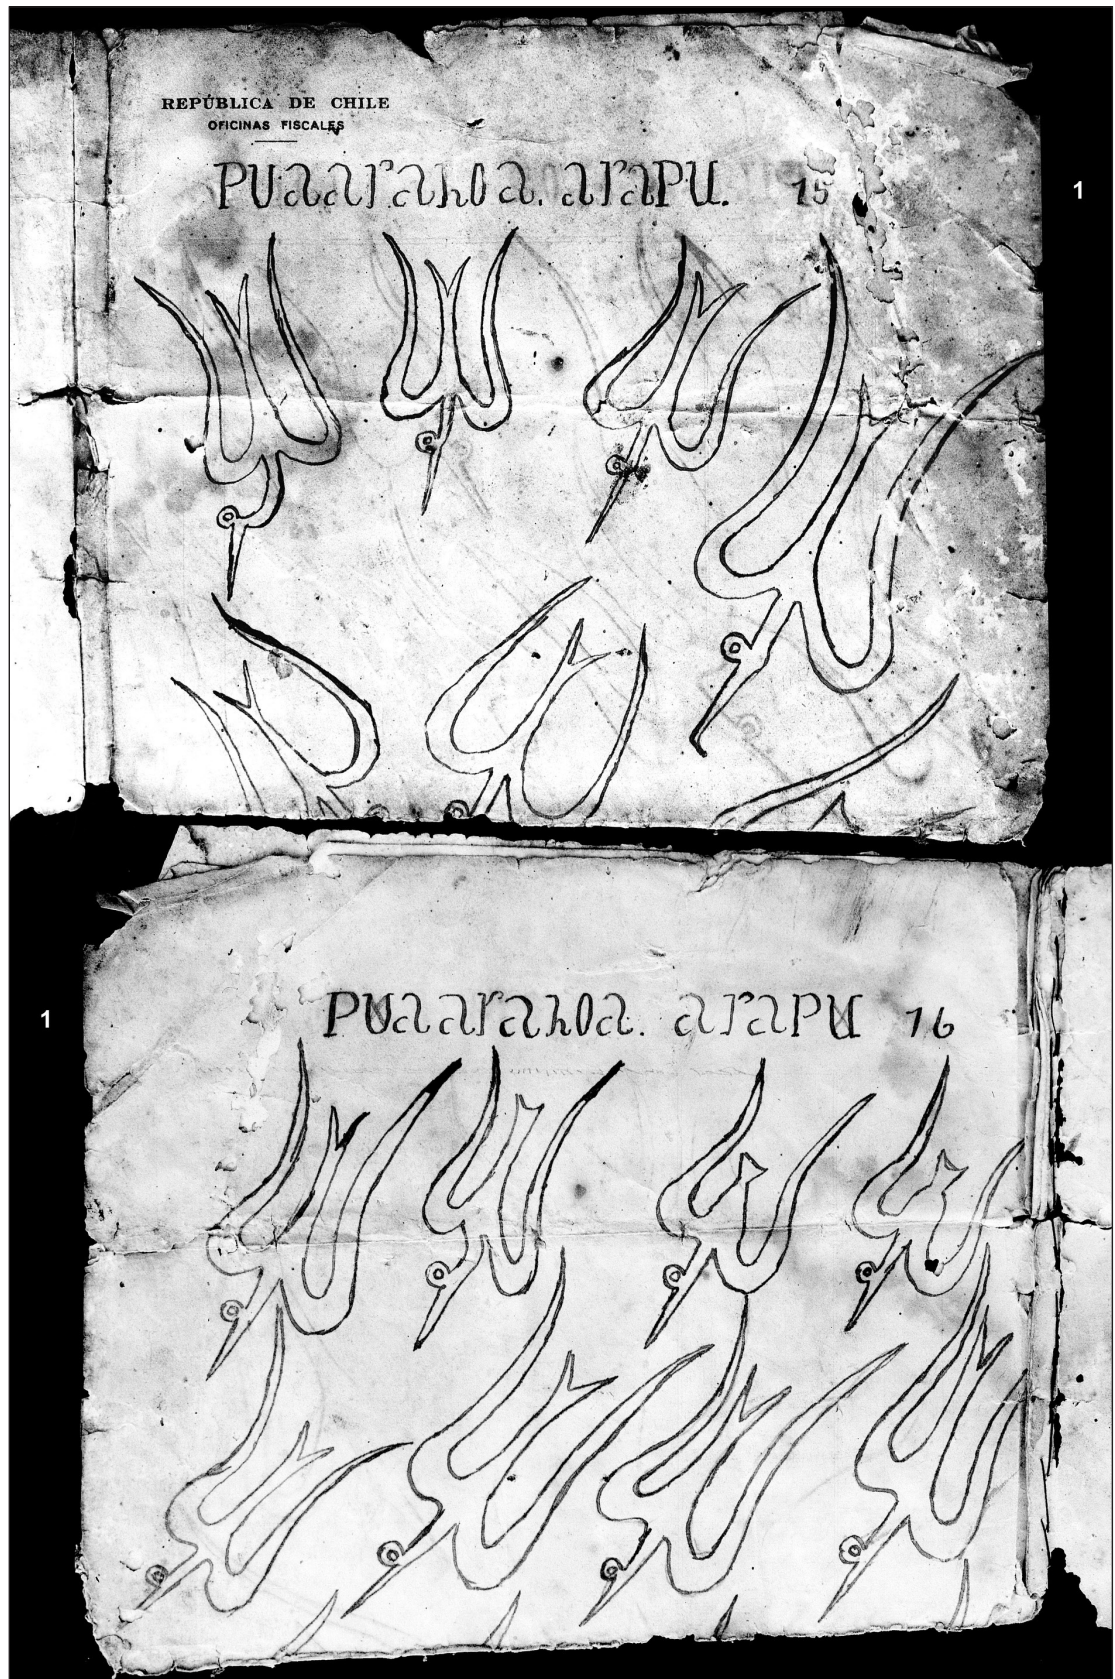 REPÚBLICA DE CHILE
OFICINAS FISCALES
PUaarahoa. araPU. 15
1
PUaarahoa. araPU 16
1